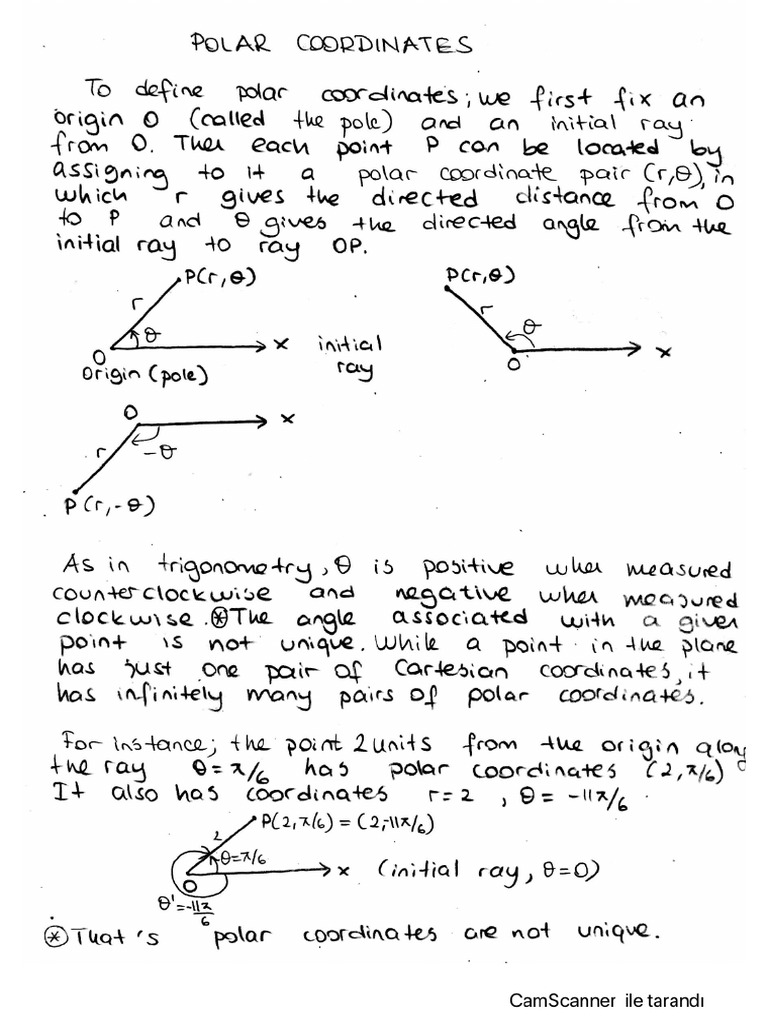 POLAR COORDINATES
To define polar coordinates; we first fix an
origin O (called the pole) and an initial ray
from O. Then each point P can be located by
assigning to it a polar coordinate pair (r,θ), in
which r gives the directed distance from O
to P and θ gives the directed angle from the
initial ray to ray OP.
P(r,θ)
r
θ
O
x
initial
ray
Origin (pole)
P(r,θ)
r
θ
O
x
O
x
r
-θ
P(r,-θ)
As in trigonometry, θ is positive when measured
counterclockwise and negative when measured
clockwise. ⊛The angle associated with a given
point is not unique. While a point in the plane
has just one pair of Cartesian coordinates, it
has infinitely many pairs of polar coordinates.
For instance; the point 2 units from the origin along
the ray θ=π/6 has polar coordinates (2,π/6)
It also has coordinates r=2, θ= -11π/6.
P(2,π/6) = (2,-11π/6)
2
θ=π/6
O
x (initial ray, θ=0)
θ'=-11π/6
⊛That's polar coordinates are not unique.
CamScanner ile tarandı